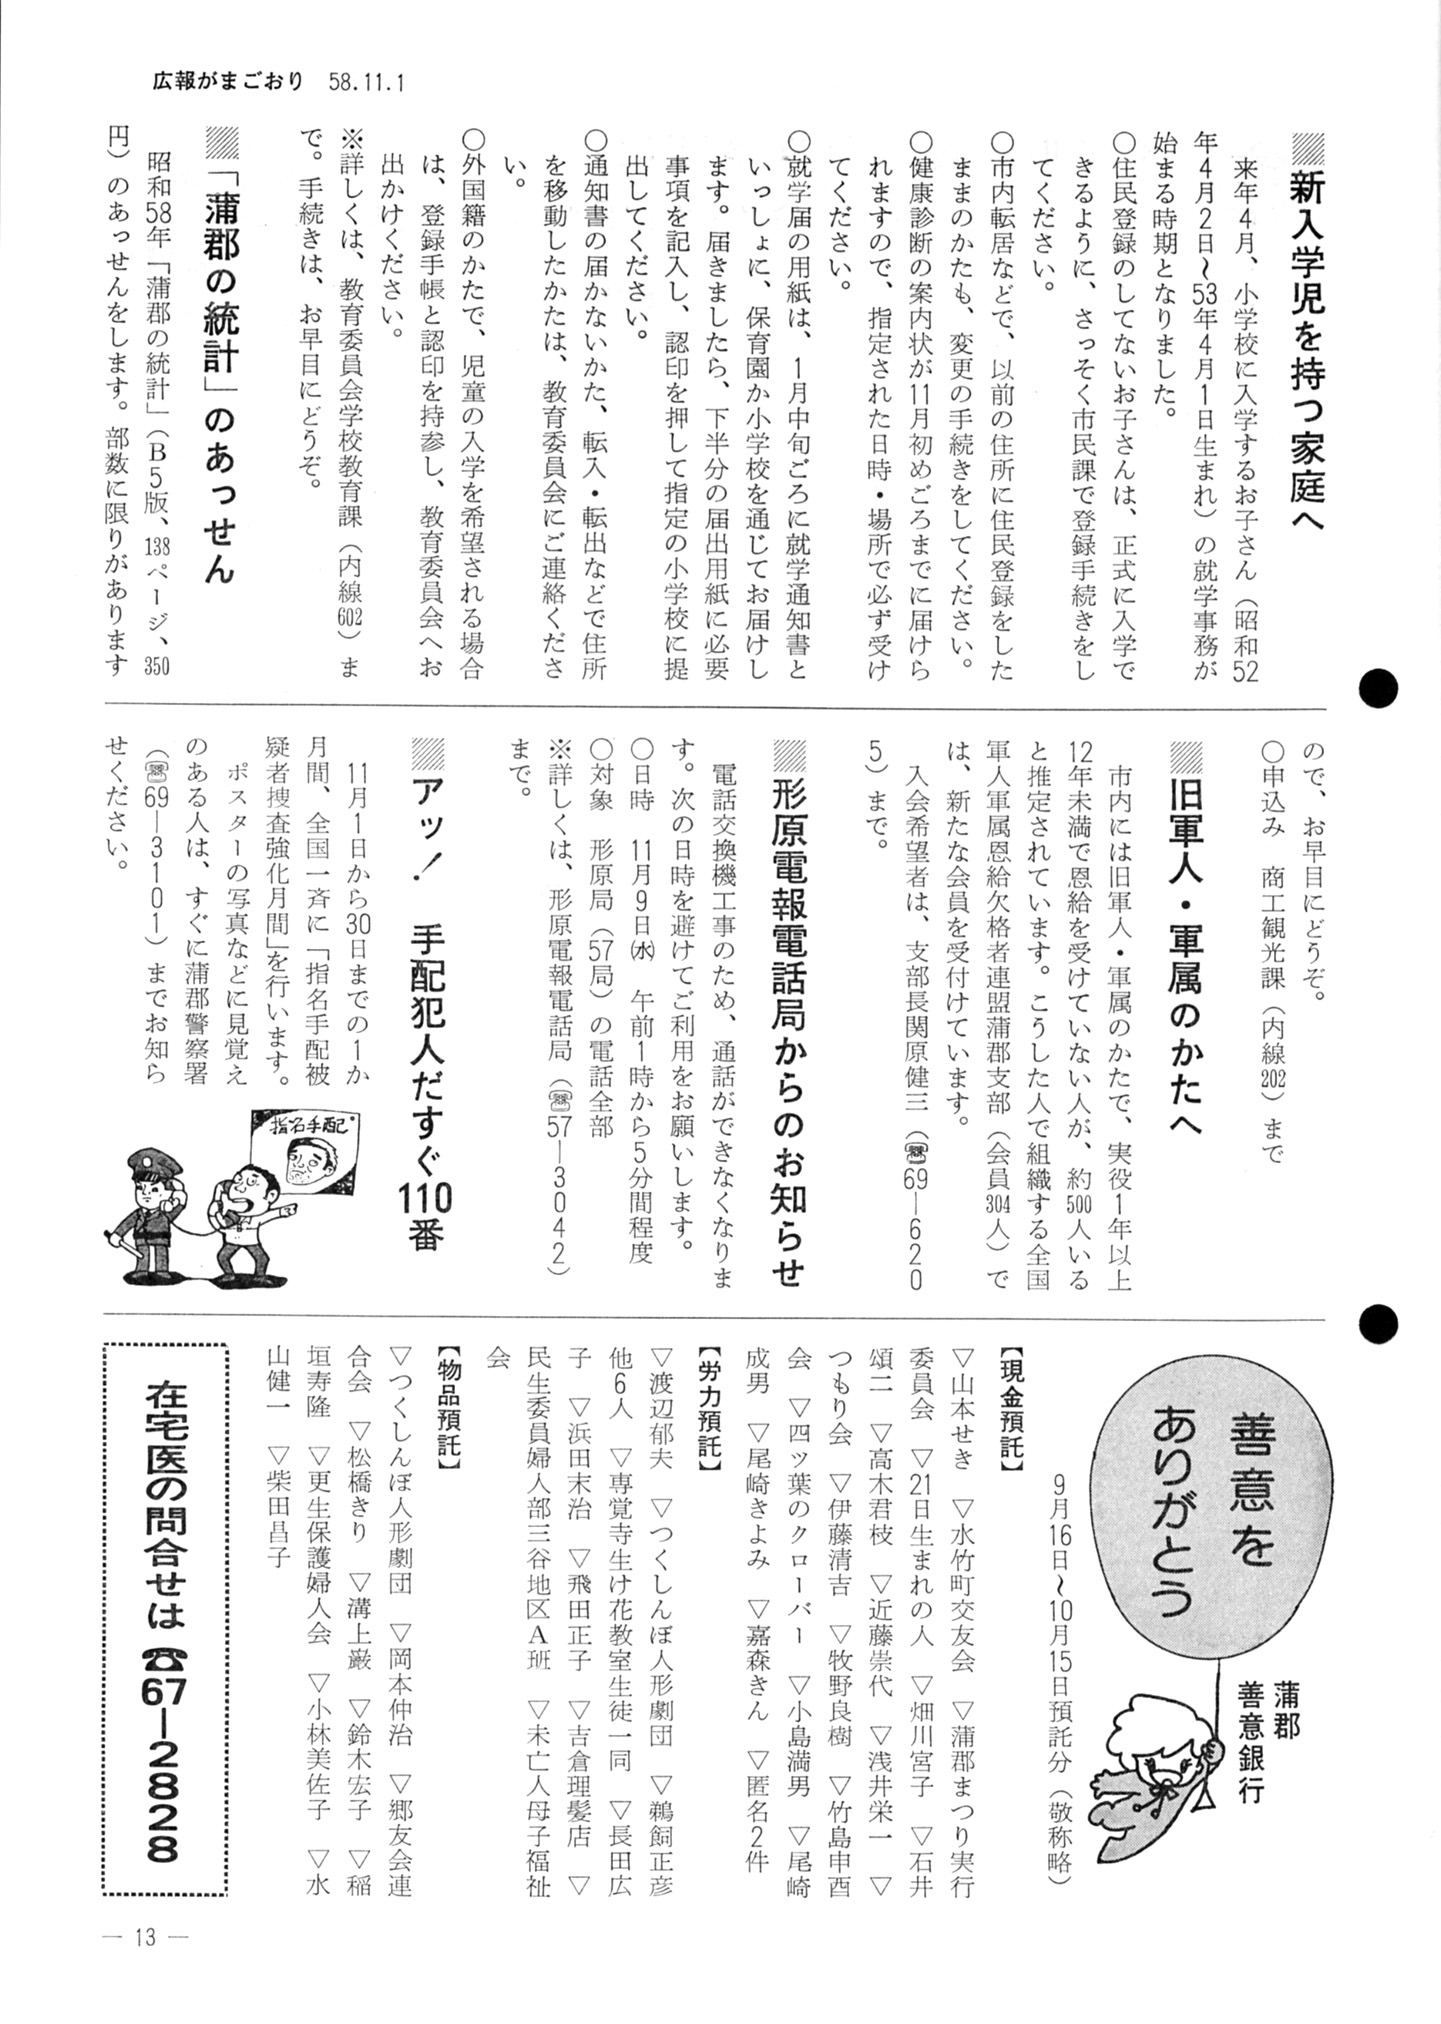 広報がまごおり 58.11.1
新入学児を持つ家庭へ
来年4月、小学校に入学するお子さん（昭和52
年4月2日〜53年4月1日生まれ）の就学事務が
始まる時期となりました。
○住民登録のしてないお子さんは、正式に入学で
きるように、さっそく市民課で登録手続きをし
てください。
○市内転居などで、以前の住所に住民登録をした
ままのかたも、変更の手続きをしてください。
○健康診断の案内状が11月初めごろまでに届けら
れますので、指定された日時・場所で必ず受け
てください。
○就学届の用紙は、1月中旬ごろに就学通知書と
いっしょに、保育園か小学校を通じてお届けし
ます。届きましたら、下半分の届出用紙に必要
事項を記入し、認印を押して指定の小学校に提
出してください。
○通知書の届かないかた、転入・転出などで住所
を移動したかたは、教育委員会にご連絡くださ
い。
○外国籍のかたで、児童の入学を希望される場合
は、登録手帳と認印を持参し、教育委員会へお
出かけください。
※詳しくは、教育委員会学校教育課（内線602）ま
で。手続きは、お早目にどうぞ。
「蒲郡の統計」のあっせん
昭和58年「蒲郡の統計」（B5版、138ページ、350
円）のあっせんをします。部数に限りがあります
ので、お早目にどうぞ。
○申込み 商工観光課（内線202）まで
旧軍人・軍属のかたへ
市内には旧軍人・軍属のかたで、実役1年以上
12年未満で恩給を受けていない人が、約500人いる
と推定されています。こうした人で組織する全国
軍人軍属恩給欠格者連盟蒲郡支部（会員304人）で
は、新たな会員を受付けています。
入会希望者は、支部長関原健三（☎69―620
5）まで。
形原電報電話局からのお知らせ
電話交換機工事のため、通話ができなくなりま
す。次の日時を避けてご利用をお願いします。
○日時 11月9日㈬ 午前1時から5分間程度
○対象 形原局（57局）の電話全部
※詳しくは、形原電報電話局（☎57―3042）
まで。
アッ！ 手配犯人だすぐ110番
11月1日から30日までの1か
月間、全国一斉に「指名手配被
疑者捜査強化月間」を行います。
ポスターの写真などに見覚え
のある人は、すぐに蒲郡警察署
（☎69―3101）までお知ら
せください。
指名手配
善意を
ありがとう
蒲郡
善意銀行
9月16日〜10月15日預託分（敬称略）
【現金預託】
▽山本せき ▽水竹町交友会 ▽蒲郡まつり実行
委員会 ▽21日生まれの人 ▽畑川宮子 ▽石井
頌二 ▽高木君枝 ▽近藤崇代 ▽浅井栄一 ▽
つもり会 ▽伊藤清吉 ▽牧野良樹 ▽竹島申酉
会 ▽四ッ葉のクローバー ▽小島満男 ▽尾崎
成男 ▽尾崎きよみ ▽嘉森きん ▽匿名2件
【労力預託】
▽渡辺郁夫 ▽つくしんぼ人形劇団 ▽鵜飼正彦
他6人 ▽専覚寺生け花教室生徒一同 ▽長田広
子 ▽浜田末治 ▽飛田正子 ▽吉倉理髪店 ▽
民生委員婦人部三谷地区A班 ▽未亡人母子福祉
会
【物品預託】
▽つくしんぼ人形劇団 ▽岡本仲治 ▽郷友会連
合会 ▽松橋きり ▽溝上巌 ▽鈴木宏子 ▽稲
垣寿隆 ▽更生保護婦人会 ▽小林美佐子 ▽水
山健一 ▽柴田昌子
在宅医の問合せは ☎67―2828
― 13 ―